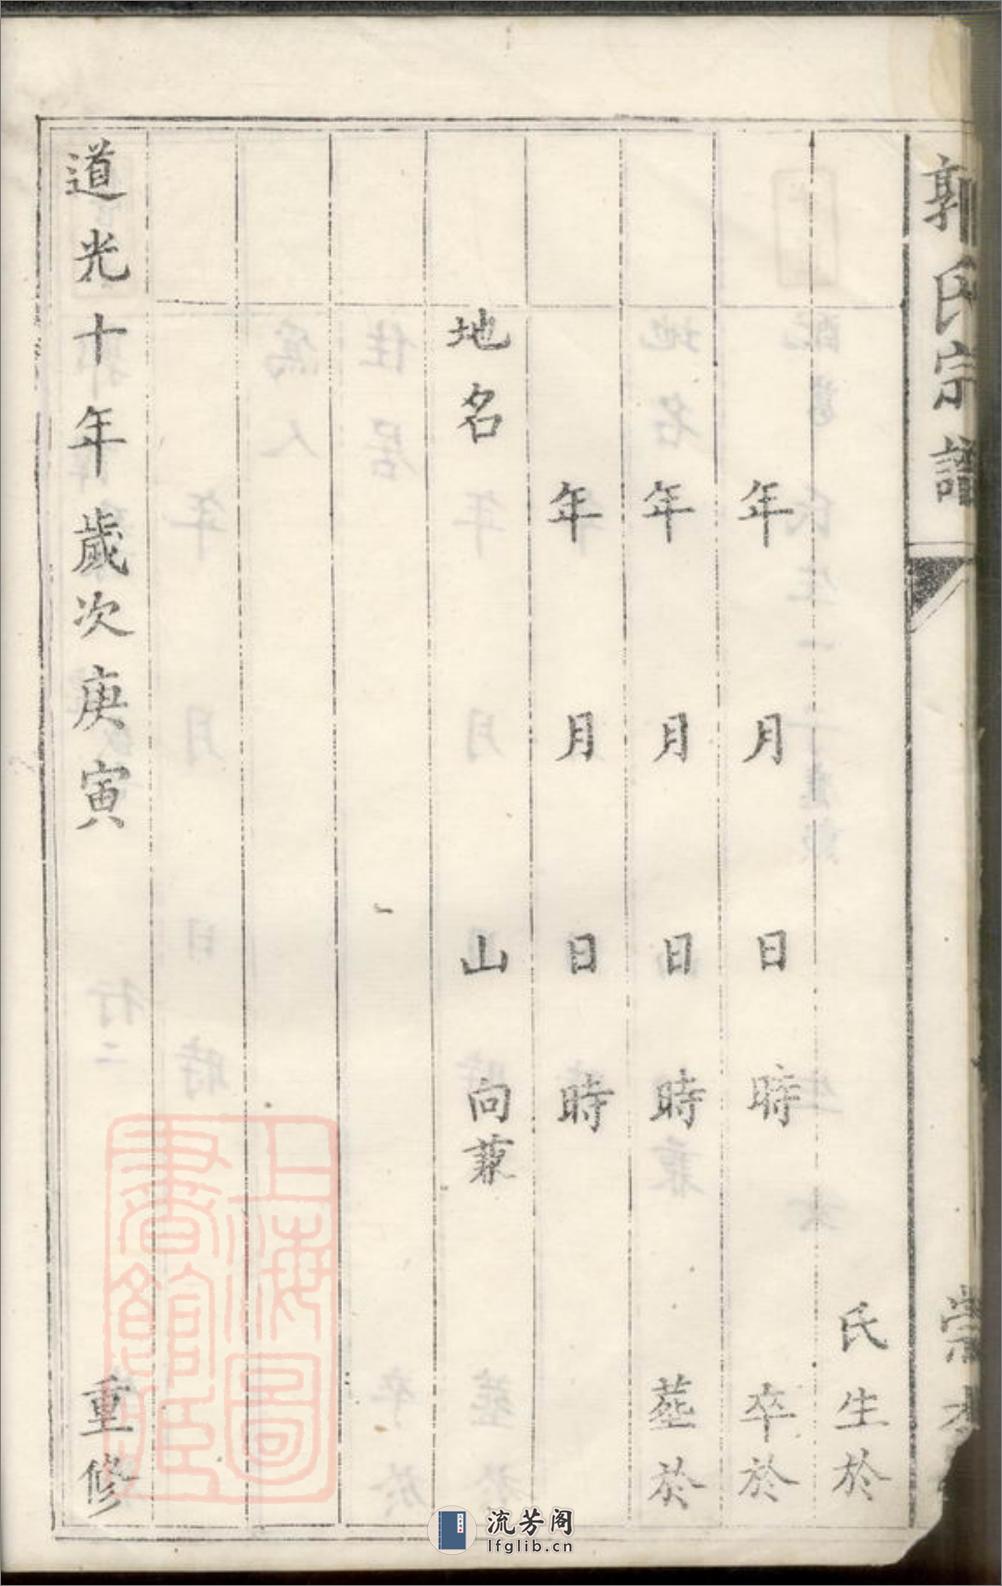 郭氏宗譜
崇本
氏生於
年月日時卒於
年月日時葬於
年月日時
地名山向兼
道光十年歲次庚寅重修
上海圖書館藏
流芳阁
lfglib.cn